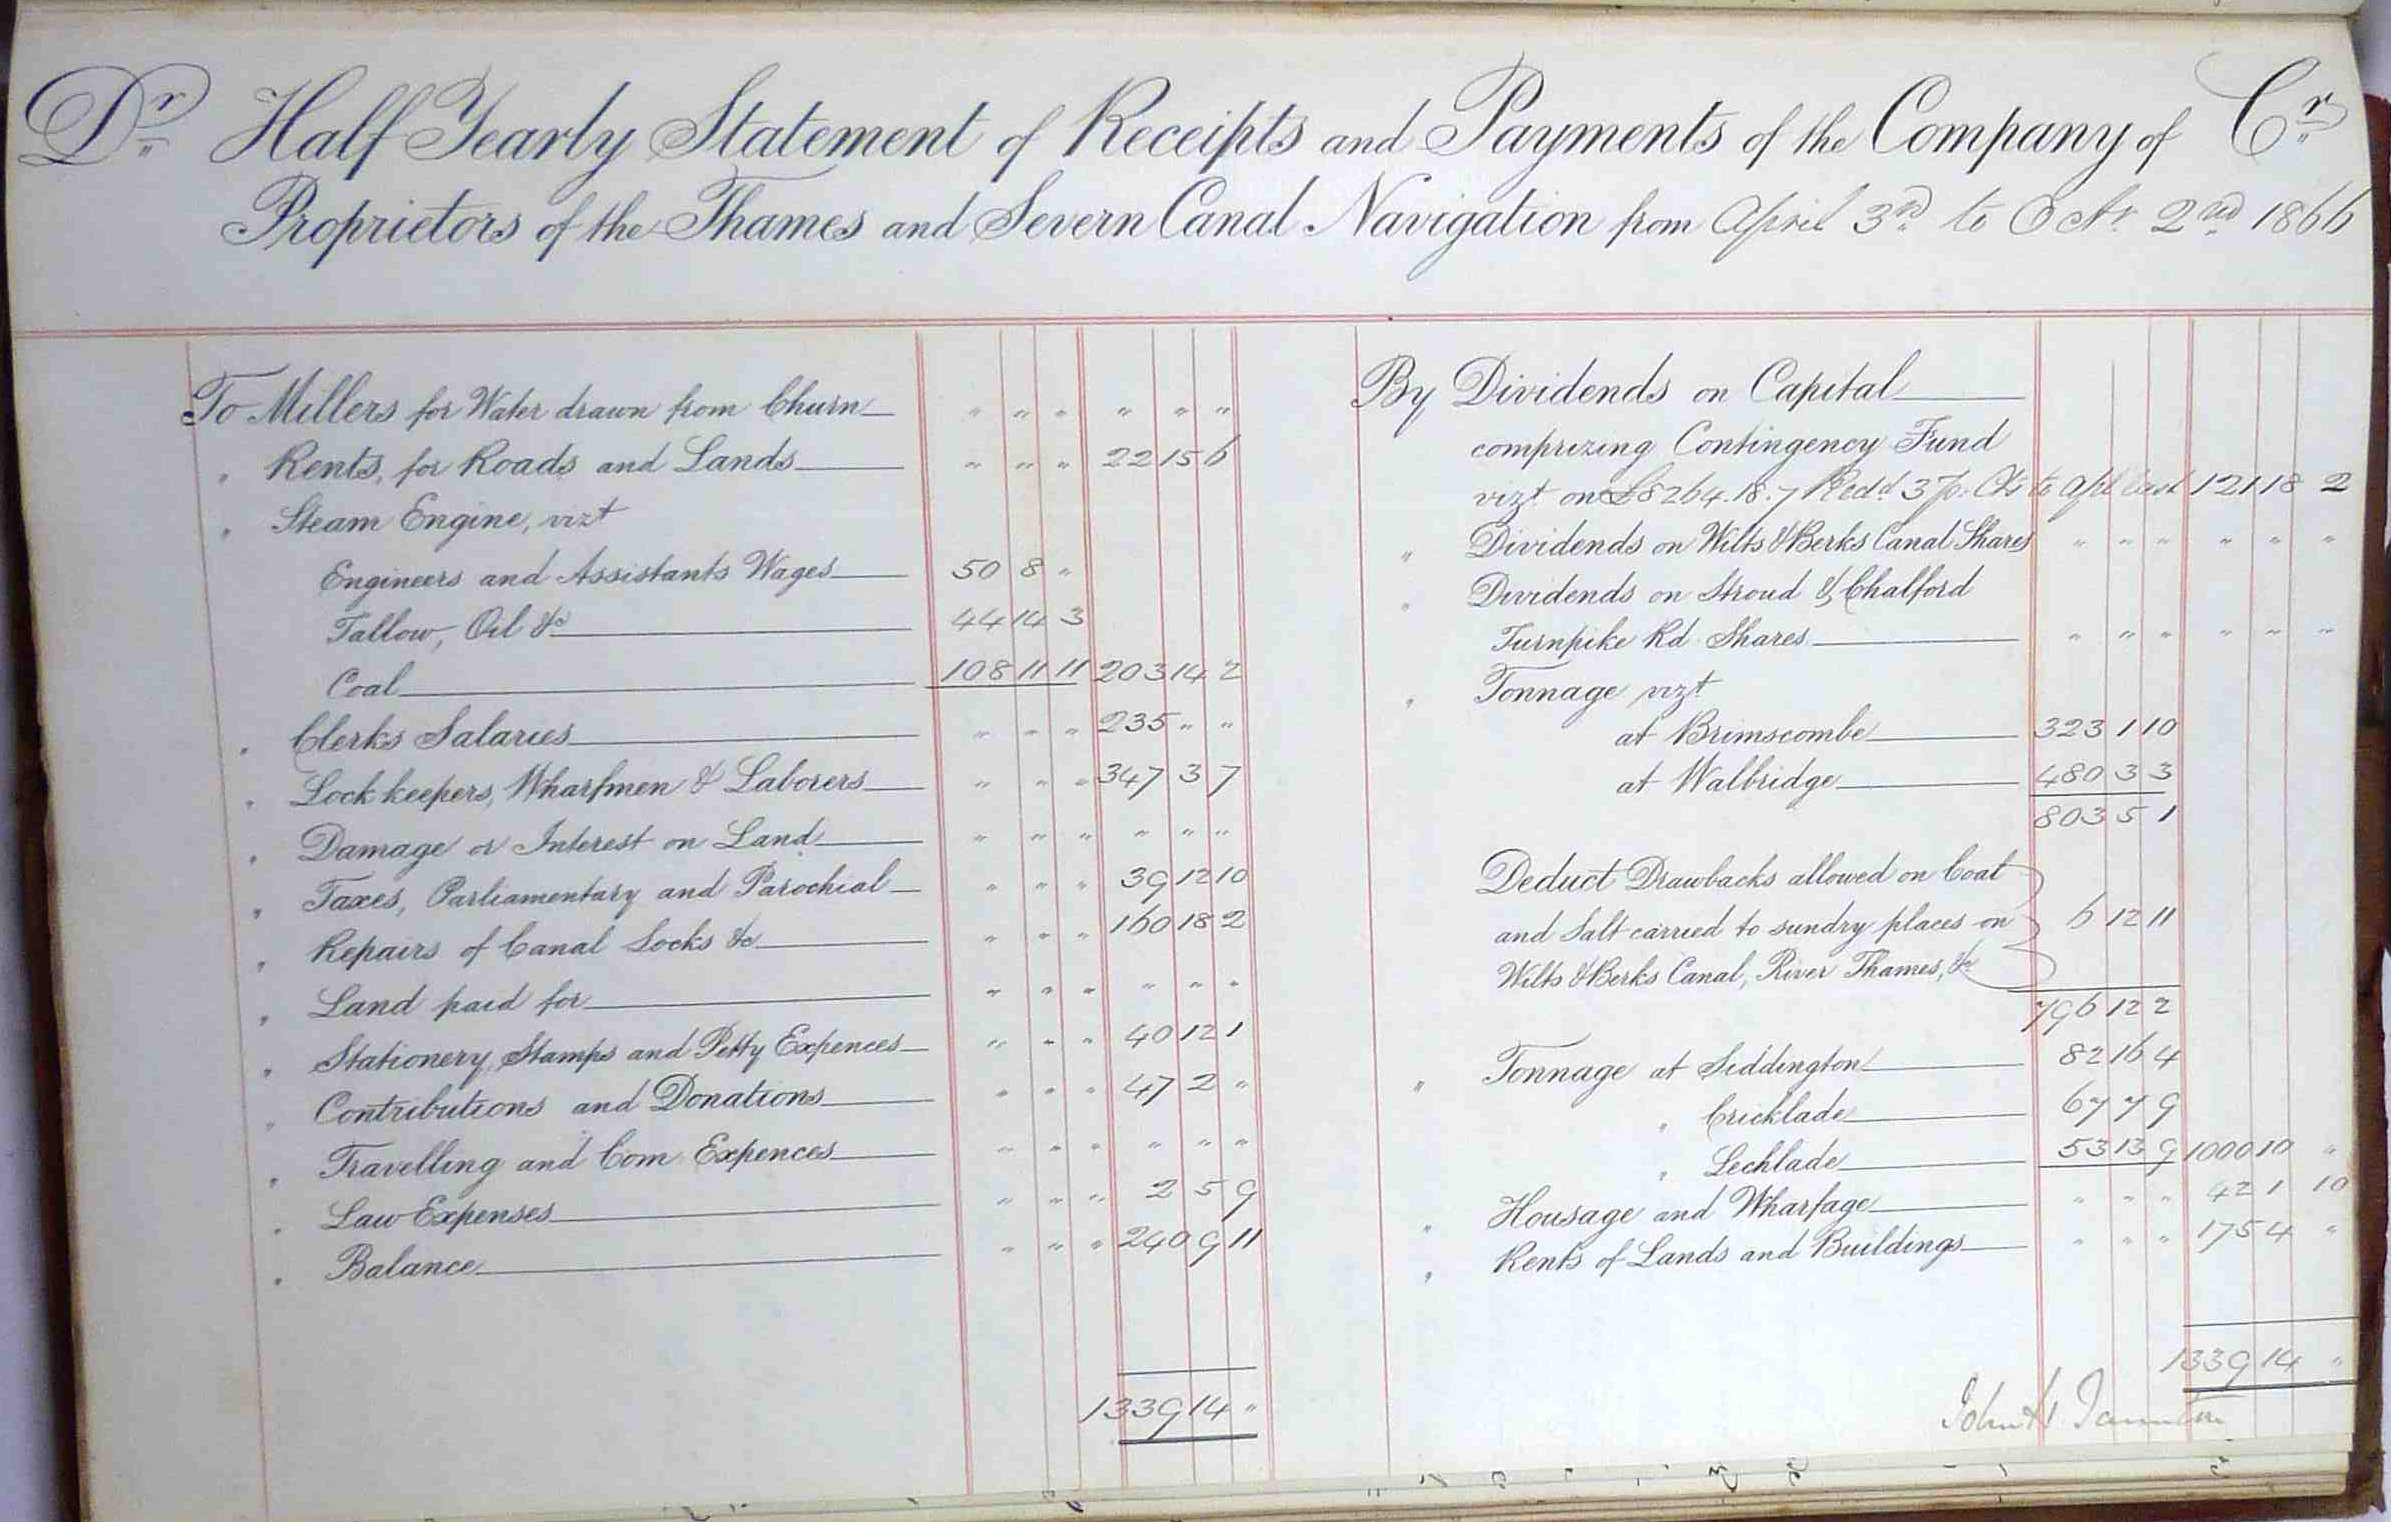 Dr Half Yearly Statement of Receipts and Payments of the Company of Cr
Proprietors of the Thames and Severn Canal Navigation from April 3rd to Octr 2nd 1866
To Millers for Water drawn from Churn " " " " " "
" Rents, for Roads and Lands " " " 22 15 6
" Steam Engine, vizt
Engineers and Assistants Wages 50 8 "
Tallow, Oil &c 44 14 3
Coal 108 11 11 203 14 2
" Clerks Salaries " " " 235 " "
" Lock keepers, Wharfmen & Laborers " " " 347 3 7
" Damage or Interest on Land " " " " " "
" Taxes, Parliamentary and Parochial " " " 39 12 10
" Repairs of Canal Locks &c " " " 160 18 2
" Land paid for " " " " " "
" Stationery, Stamps and Petty Expences " " " 40 12 1
" Contributions and Donations " " " 47 2 "
" Travelling and Com Expences " " " " " "
" Law Expenses " " " 2 5 9
" Balance " " " 240 9 11
1339 14 "
By Dividends on Capital
comprizing Contingency Fund
vizt on £8264.18.7 Redd 3 p. Cts to Apl last 121 18 2
" Dividends on Wilts & Berks Canal Shares " " " " " "
" Dividends on Stroud & Chalford
Turnpike Rd Shares " " " " " "
" Tonnage vizt
at Brimscombe 323 1 10
at Walbridge 480 3 3
803 5 1
Deduct Drawbacks allowed on Coal
and Salt carried to sundry places on 6 12 11
Wilts & Berks Canal, River Thames, &c
796 12 2
" Tonnage at Siddington 82 16 4
" Cricklade 67 7 9
" Lechlade 53 13 9 1000 10 "
" Housage and Wharfage " " " 42 1 10
" Rents of Lands and Buildings " " " 175 4 "
1339 14 "
John H Taunton